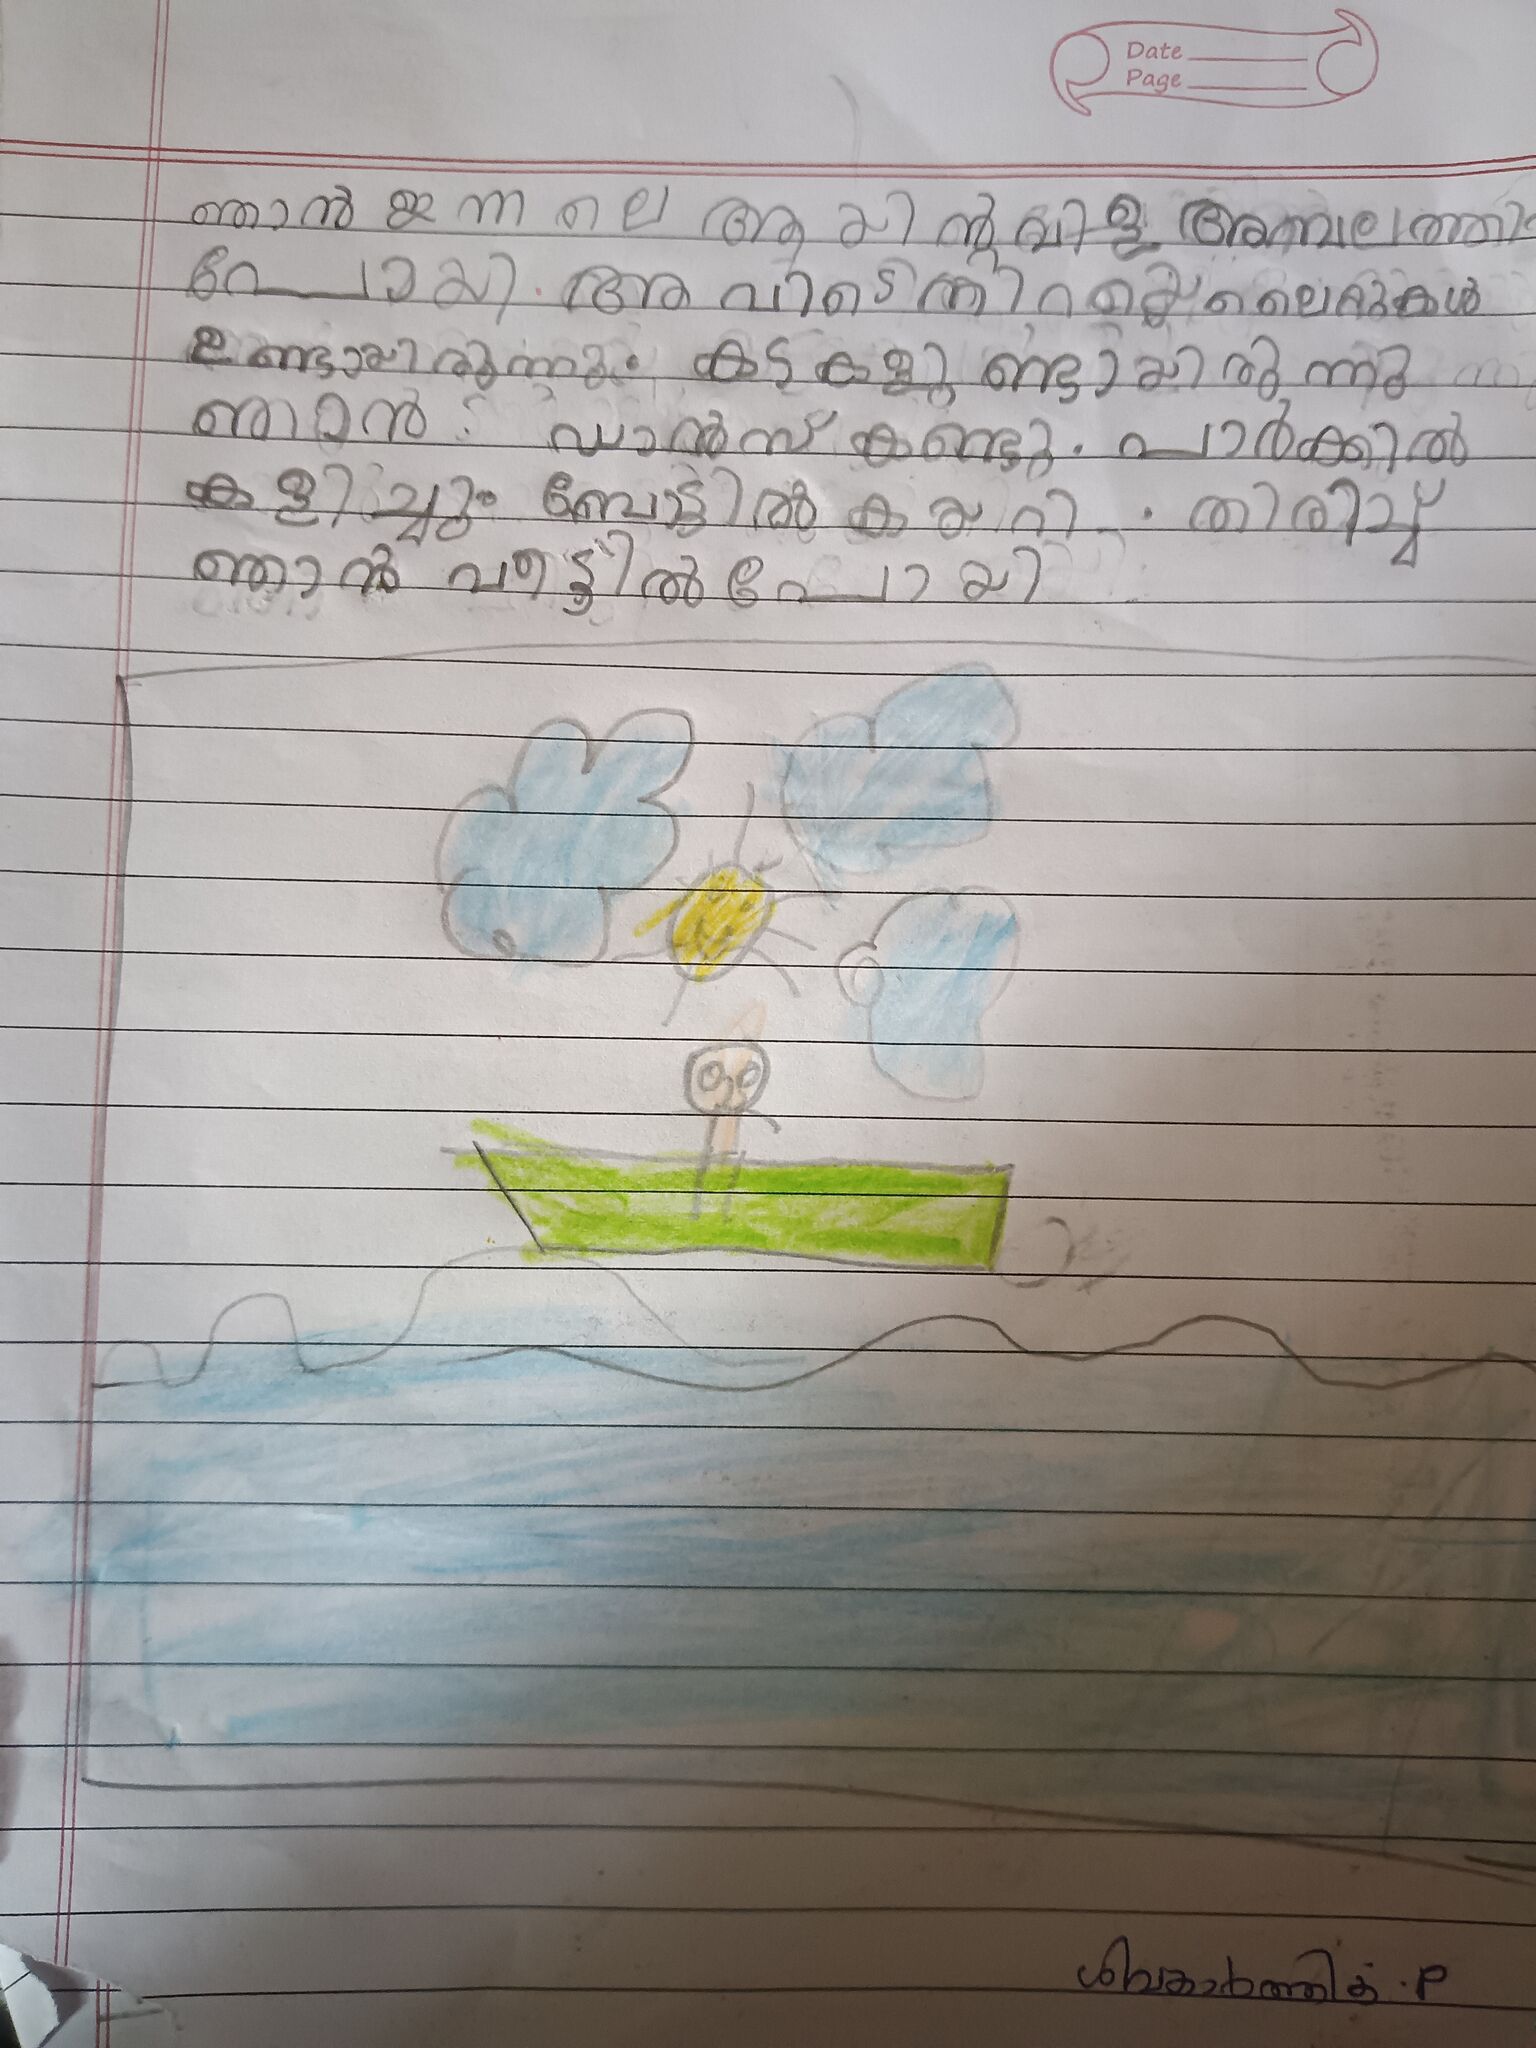 Date
Page
ഞാൻ ഇന്നലെ ആയിൻ്റവിള അമ്പലത്തിൽ
പോയി. അവിടെ നിറയെ ലൈറ്റുകൾ
ഉണ്ടായിരുന്നു. കടകളുണ്ടായിരുന്നു
ഞാൻ. ഡാൻസ് കണ്ടു. പാർക്കിൽ
കളിച്ചു. ബോട്ടിൽ കയറി. തിരിച്ച്
ഞാൻ വീട്ടിൽ പോയി
ശിവകാർത്തിക്. P